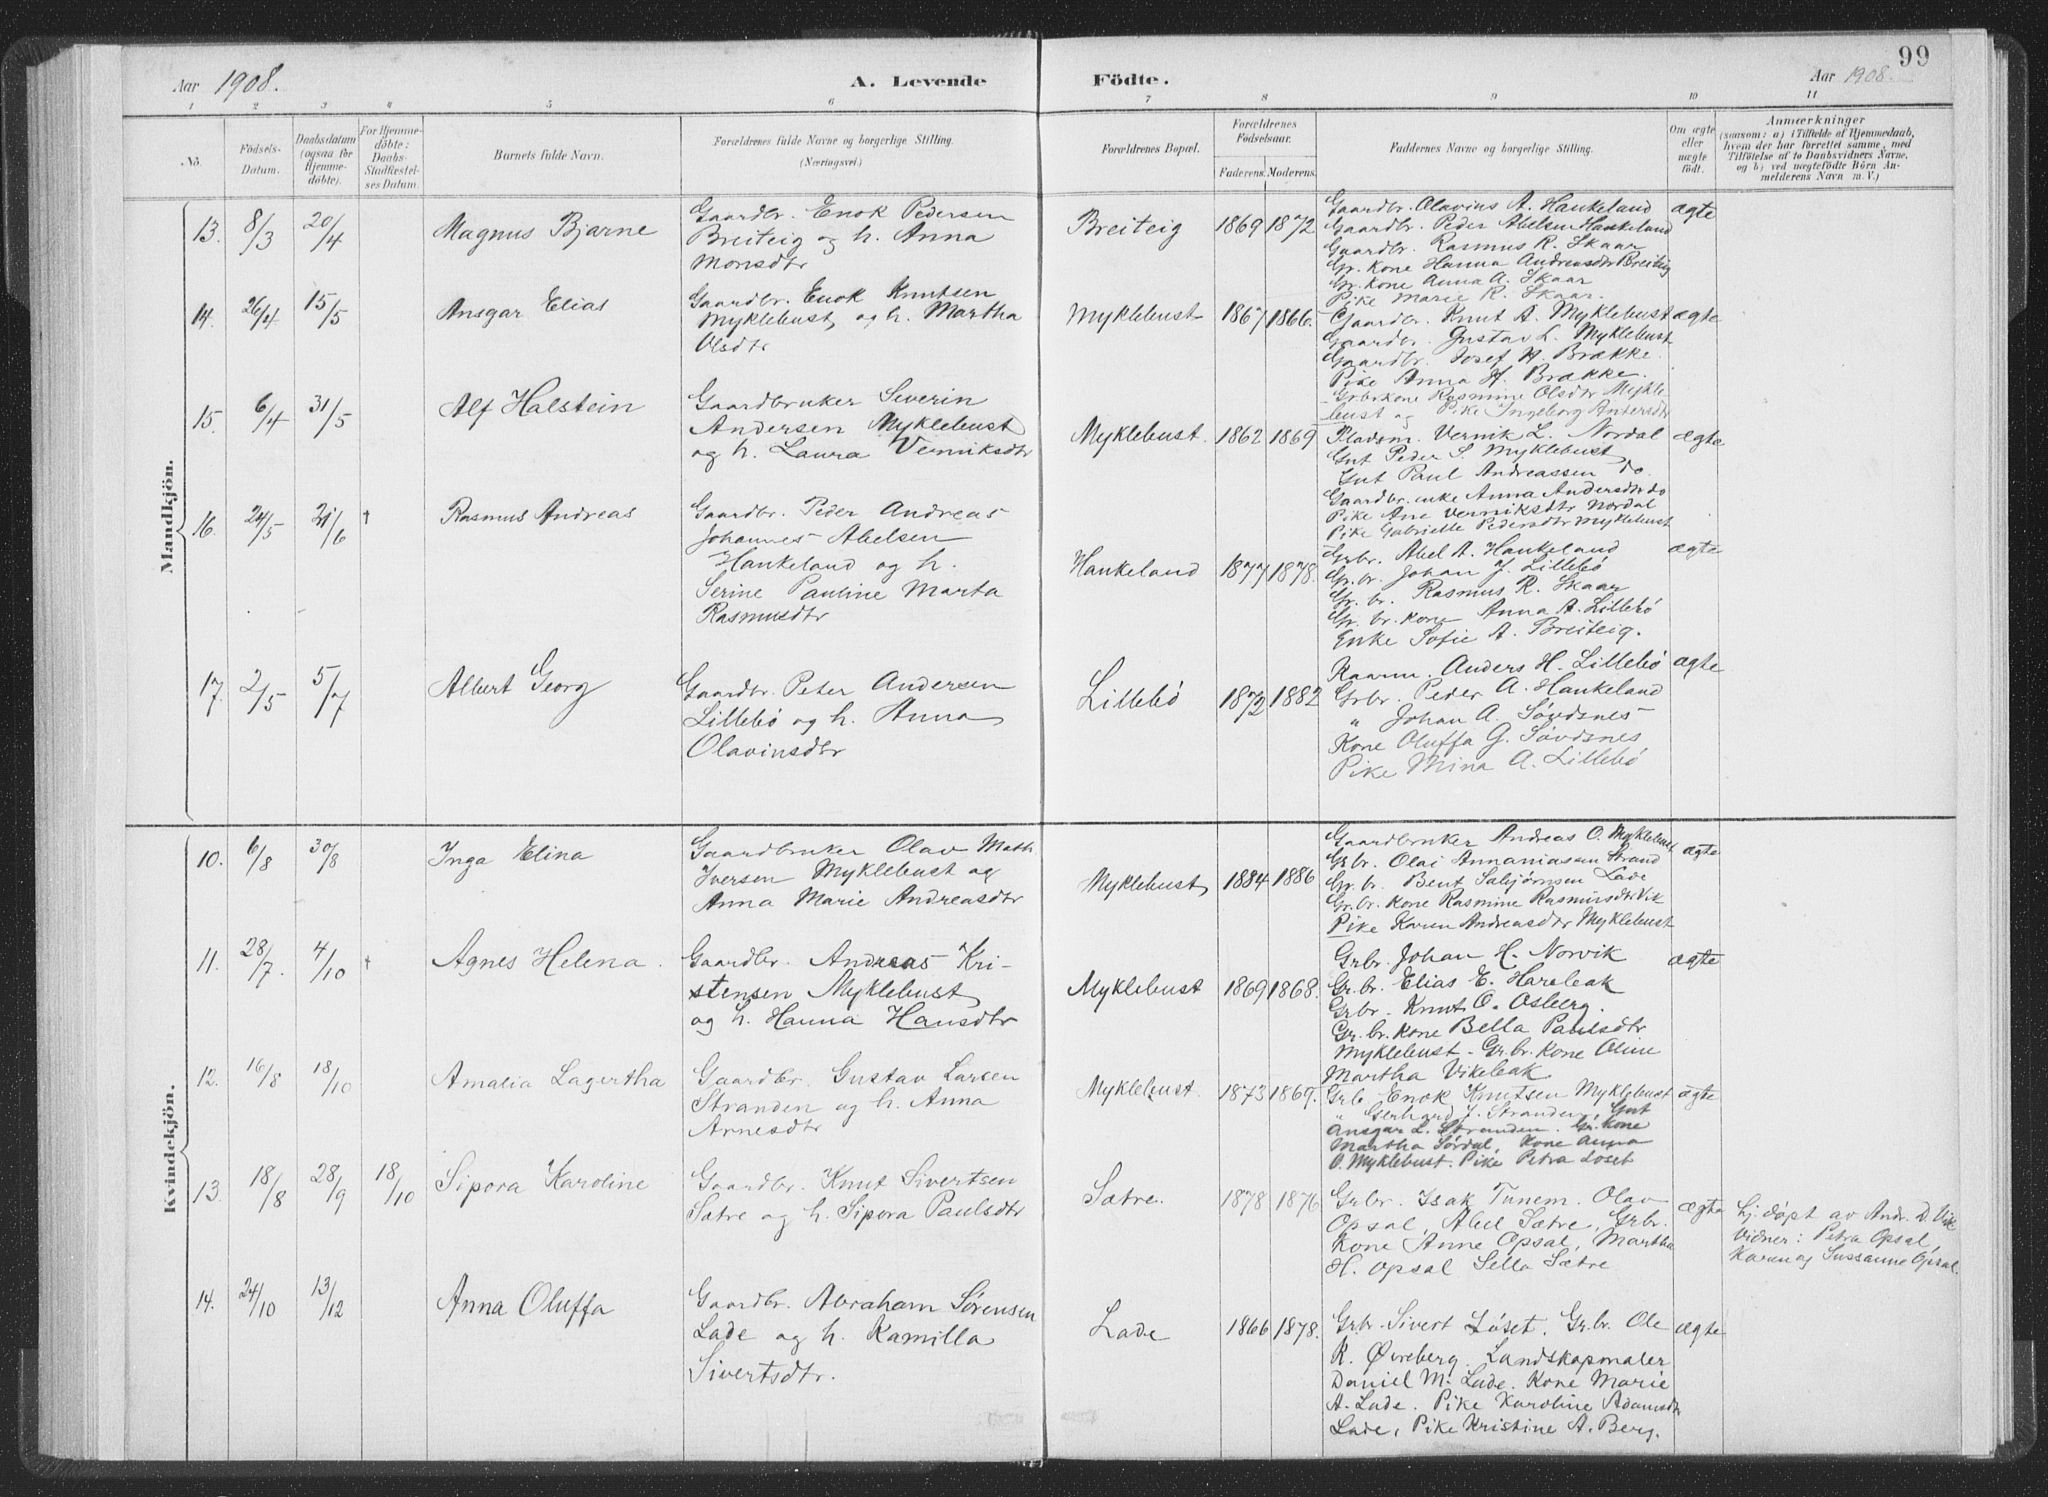 99
Aar 1908.
A. Levende
Födte.
Aar 1908.
1 2 3 4 5 6 7 8 9 10 11
No.
Födsels-Datum.
Daabsdatum (ogsaa for Hjemmedöbte).
For Hjemmedöbte: Daabs-Stadfæstelses Datum.
Barnets fulde Navn.
Forældrenes fulde Navne og borgerlige Stilling.
(Næringsvei)
Forældrenes Bopæl.
Forældrenes Födselsaar.
Faderens. Moderens.
Faddernes Navne og borgerlige Stilling.
Om ægte eller uægte födt.
Anmærkninger
(saasom: a) i Tilfælde af Hjemmedaab, hvem der har forrettet samme, med Tilföielse af to Daabsvidners Navne, og b) ved uægtefödte Börn Anmelderens Navn m. V.)
Mandkjön.
13. 8/3 20/4 Magnus Bjarne
Gaardbr. Enok Pedersen
Breiteig og h. Anna
Monsdtr
Breiteig 1869 1872
Gaardbr. Olavius A. Hankeland
Gaardbr. Peder Abelsen Hankeland
Gaardbr. Rasmus R. Skaar
Gr. Kone Hanna Andreasdtr Breiteig
Gr. Kone Anna A. Skaar
Pike Marie R. Skaar.
ægte
14. 26/4 15/5 Ansgar Elias
Gaardbr. Enok Knutsen
Myklebust, og h. Martha
Olsdtr
Myklebust 1867 1866.
Gaardbr. Knut A. Myklebust
Gaardbr. Gustav L. Myklebust
Gaardbr. Josef H. Brække.
Pike Anna H. Brække.
Grbr kone Rasmine Olsdtr Mykle
bust og Pike Ingeborg Antersdtr
ægte
15. 6/4 31/5 Alf Halstein
Gaardbruker Severin
Andersen Myklebust
og h. Laura Verniksdtr
Myklebust. 1862 1869
Pladsm. Vernik L. Nordal
Gut Peder S. Myklebust
Gut Paul Andreassen do.
Gaardbr. enke Anna Andersdtr do
Pike Ane Verniksdtr Nordal
Pike Gabrielle Pedersdtr Myklebust
ægte
16. 24/5 21/6 † Rasmus Andreas
Gaardbr. Peder Andreas
Johannes Abelsen
Hankeland og h.
Serine Pauline Marta
Rasmusdtr
Hankeland 1877 1878.
Grbr. Abel A. Hankeland
Gr. br. Johan J. Lillebö
Gr. br. Rasmus R. Skaar
Gr. br. kone Anna A. Lillebö
Enke Sofie A. Breiteig.
ægte
17. 2/5 5/7 Albert Georg
Gaardbr. Peter Andersen
Lillebö og h. Anna
Olavinsdtr
Lillebö 1872 1882
Kaarm. Anders H. Lillebö
Grbr. Peder A. Hankeland
" Johan A. Sövdsnes
Kone Oluffa G. Sövdsnes
Pike Mina A. Lillebö
ægte
Kvindekjön.
10. 6/8 30/8 Inga Elina
Gaardbruker Olav Math
Iversen Myklebust og
Anna Marie Andreasdtr
Myklebust 1884 1886
Gaardbruker Andreas O. Myklebust
Gr br. Olai Annaniassen Strand
Gr. br. Bent Salsjörnsen Lade
Gr. br. Kone Rasmine Rasmusdtr Vik
Pike Karen Andreasdtr Myklebust
ægte
11. 28/7. 4/10 † Agnes Helena.
Gaardbr. Andreas Kri-
stensen Myklebust
og h. Hanna Hansdtr
Myklebust 1869 1868.
Grbr. Johan H. Norvik
Gr. br. Elias E. Hareleak
Grbr. Knut O. Osberg.
Gr. br. kone Bella Paulsdtr
Myklebust - Gr. br. kone Oline
Martha Vikeleak
ægte
12. 16/8 18/10 Amalia Lagertha
Gaardbr. Gustav Larsen
Stranden og h. Anna
Arnesdtr
Myklebust. 1873 1869.
Grb. Enok Knutsen Myklebust
" Gerhard J. Stranden, Gut
Ansgar L. Stranden. Gr. Kone
Martha Sördal, Kone Anna
O. Myklebust. Pike Petra Löset
ægte
13. 18/8 28/9 18/10 Sipora Karoline
Gaardbr. Knut Sivertsen
Sætre og h. Sipora Paulsdtr
Sætre. 1878 1876
Grbr. Isak Tunem. Olav
Opsal, Abel Sætre, Grbr.
Kone Anne Opsal, Martha
H. Opsal Sella Sætre
ægte
hj. döpt av Andr. D. Vik
Vidner: Petra Opsal,
Karen og Sussanne Opsal.
14. 24/10 13/12 Anna Oluffa
Gaardbr. Abraham Sörensen
Lade og h. Kamilla
Sivertsdtr.
Lade 1866 1878.
Grbr. Sivert Löset. Gr. br. Ole
R. Øvreberg. Landskapmaler
Daniel M. Lade. Kone Marie
A. Lade. Pike Karoline Adamsdtr
Lade, Pike Kristine A. Berg.
ægte